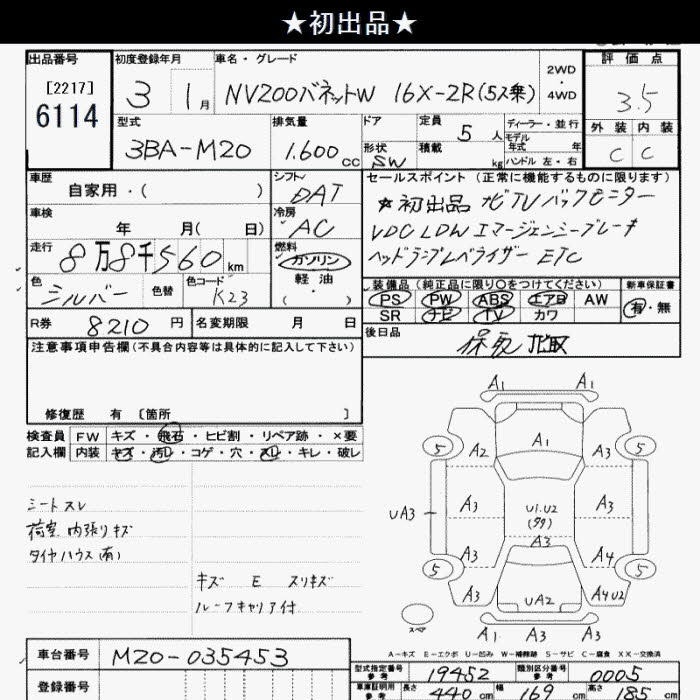 ★初出品★
出品番号
[2217]
6114
初度登録年月
3 1月
車名・グレード
NV200バネットW 16X-2R(5ス乗)
2WD
・
4WD
評価点
3.5
外装 内装
C C
型式
3BA-M20
排気量
1.600cc
ドア
形状
SW
定員
5人
積載
kg
ディーラー・並行
モデル
年式 年
ハンドル 左・右
車歴
自家用・( )
シフト
DAT
車検
年 月( 日)
冷房
AC
走行
8万8千560km
燃料
ガソリン
軽油
・
( )
色
シルバー
色替
色コード
K23
セールスポイント(正常に機能するものに限ります)
★初出品 ナビTV バックモニター
VDC LDW エマージェンシーブレーキ
ヘッドランプレベライザー ETC
装備品(純正品に限り○をつけてください)
PS PW ABS エアB AW
SR ナビ TV カワ
新車保証書
有・無
R券 8210円
名変期限 月 日
後日品
保取
注意事項申告欄(不具合内容等は具体的に記入して下さい)
修復歴 有 〔箇所 〕
検査員
記入欄
FW キズ・飛石・ヒビ割・リペア跡・×要
内装 キズ・汚レ・コゲ・穴・スレ・キレ・破レ
シートスレ
荷室内張りキズ
タイヤハウス(有)
キズ E スリキズ
ルーフキャリア付
A1 A1
5 A2 A1 5
A3 A3
UA3
U1.U2
A3
A3 A4
5 5
A3 UA2 A4U2
スペア
A1 A3 A1
A-キズ E-エクボ U-凹み W-補修跡 S-サビ C-腐食 XX-交換済
車台番号 M20-035453
登録番号
型式指定番号
参考
19452
類別区分番号
参考
0005
車庫証明用
参考
長さ 440cm 幅 169cm 高さ 185cm